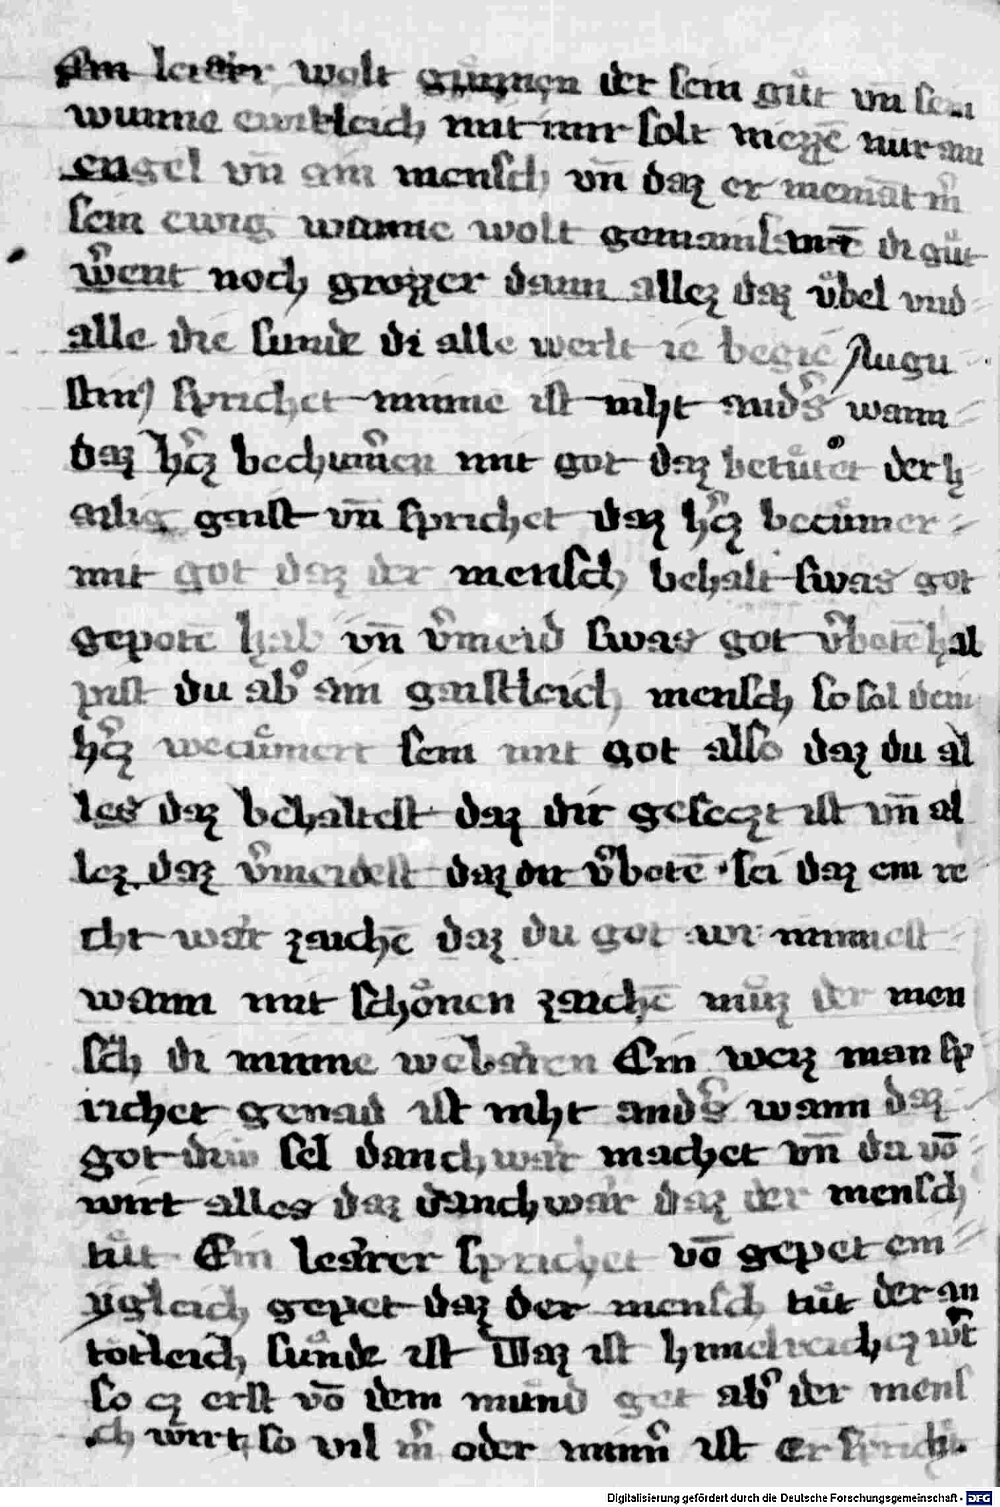 wolt der sein guͤt vn sein
mit mir solt nur ain
engel vn̄ ain mensch vn̄ daz er
sein ewig wunne wolt di guͤt
went noch grozzer dann allez daz vͤbel vnd
alle die sunde di alle werlt ie begie Augu
stin9 sprichet minne ist niht anders wann
daz hercz bechumern mit got daz der h
ailig gaist vn̄ sprichet daz hercz
mit got daz der mensch behalt swas got
gepotē hab vn̄ vͤmeid swas got vͤbotē hat
pist du aber ain gaistleich mensch so sol dein
hercz wecuͤmert sein mit got also daz du al
les daz behaltest daz dir geseczt ist vn̄ al
lez daz vͤmeidest daz dir vͤbotē sei daz ein re
cht waͤr zaichē daz du got minnest
wann mit schoͤnen zaichē muͤz der men
sch di minne webaͤren Ein weiz man sp
richet genad ist niht anders wann daz
got die sel danchwaͤr machet vn̄ da vō
wirt alles daz danchwaͤr daz der mensch
tuͤt Ein lesaͤrer sprichet vō gepet ein
ygleich gepet daz der mensch tuͤt der an
toͤtleich suͤnde ist Daz ist himelreich
so ez erst vō dem mund get aber der mens
ch so vil oder minner ist Er spricht